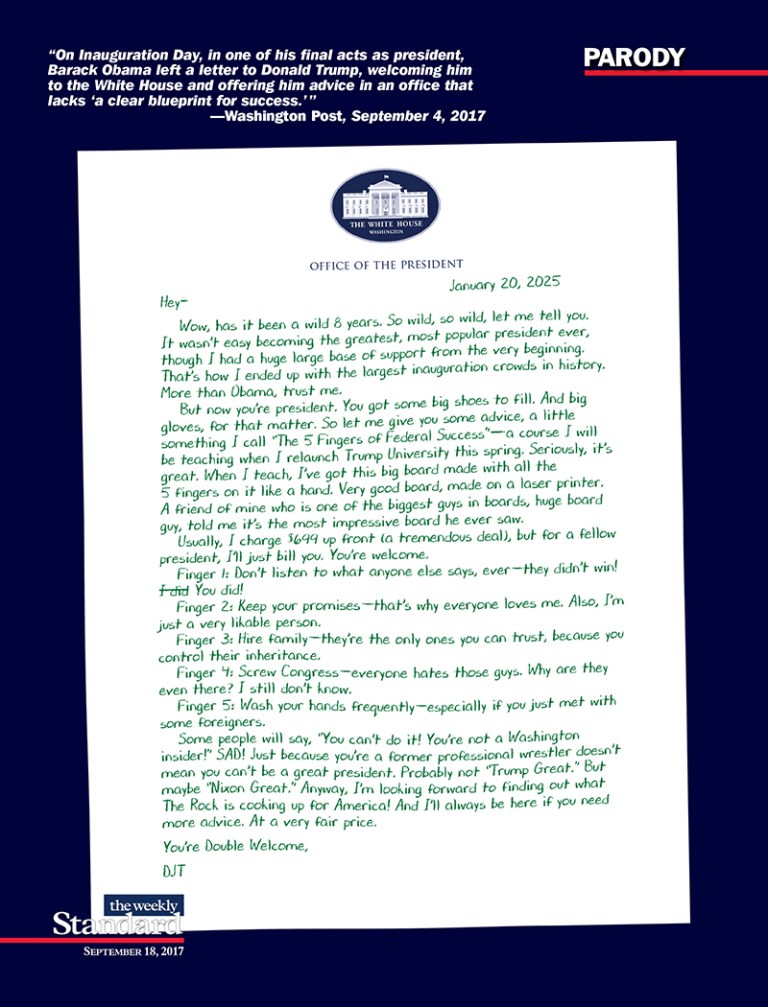 “On Inauguration Day, in one of his final acts as president,
Barack Obama left a letter to Donald Trump, welcoming him
to the White House and offering him advice in an office that
lacks ‘a clear blueprint for success.’”
—Washington Post, September 4, 2017
PARODY
THE WHITE HOUSE
WASHINGTON
OFFICE OF THE PRESIDENT
January 20, 2025
Hey-
Wow, has it been a wild 8 years. So wild, so wild, let me tell you.
It wasn't easy becoming the greatest, most popular president ever,
though I had a huge large base of support from the very beginning.
That's how I ended up with the largest inauguration crowds in history.
More than Obama, trust me.
But now you're president. You got some big shoes to fill. And big
gloves, for that matter. So let me give you some advice, a little
something I call "The 5 Fingers of Federal Success"—a course I will
be teaching when I relaunch Trump University this spring. Seriously, it's
great. When I teach, I've got this big board made with all the
5 fingers on it like a hand. Very good board, made on a laser printer.
A friend of mine who is one of the biggest guys in boards, huge board
guy, told me it's the most impressive board he ever saw.
Usually, I charge $699 up front (a tremendous deal), but for a fellow
president, I'll just bill you. You're welcome.
Finger 1: Don't listen to what anyone else says, ever—they didn't win!
I did You did!
Finger 2: Keep your promises—that's why everyone loves me. Also, I'm
just a very likable person.
Finger 3: Hire family—they're the only ones you can trust, because you
control their inheritance.
Finger 4: Screw Congress—everyone hates those guys. Why are they
even there? I still don't know.
Finger 5: Wash your hands frequently—especially if you just met with
some foreigners.
Some people will say, "You can't do it! You're not a Washington
insider!" SAD! Just because you're a former professional wrestler doesn't
mean you can't be a great president. Probably not "Trump Great." But
maybe "Nixon Great." Anyway, I'm looking forward to finding out what
The Rock is cooking up for America! And I'll always be here if you need
more advice. At a very fair price.
You're Double Welcome,
DJT
the weekly
Standard
SEPTEMBER 18, 2017